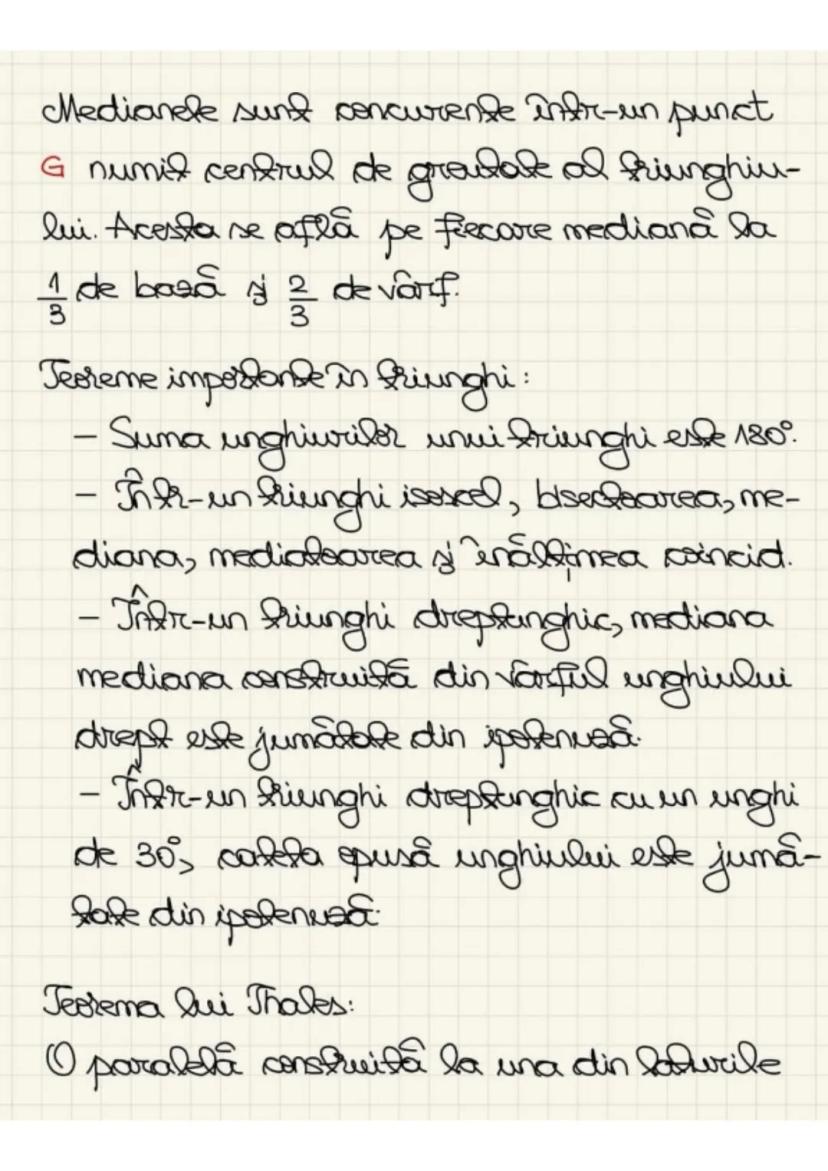 Medianele sunt concurente într-un punct
G numit centrul de greutate al triunghiu-
lui. Acesta se află pe fiecare mediană la
1/3 de bază și 2/3 de vârf.
Teoreme importante în triunghi:
- Suma unghiurilor unui triunghi este 180°.
- Într-un triunghi isoscel, bisectoarea, me-
diana, mediatoarea și înălțimea coincid.
- Într-un triunghi dreptunghic, mediana
mediana construită din vârful unghiului
drept este jumătate din ipotenuză.
- Într-un triunghi dreptunghic cu un unghi
de 30°, cateta opusă unghiului este jumă-
tate din ipotenuză.
Teorema lui Thales:
O paralelă construită la una din laturile